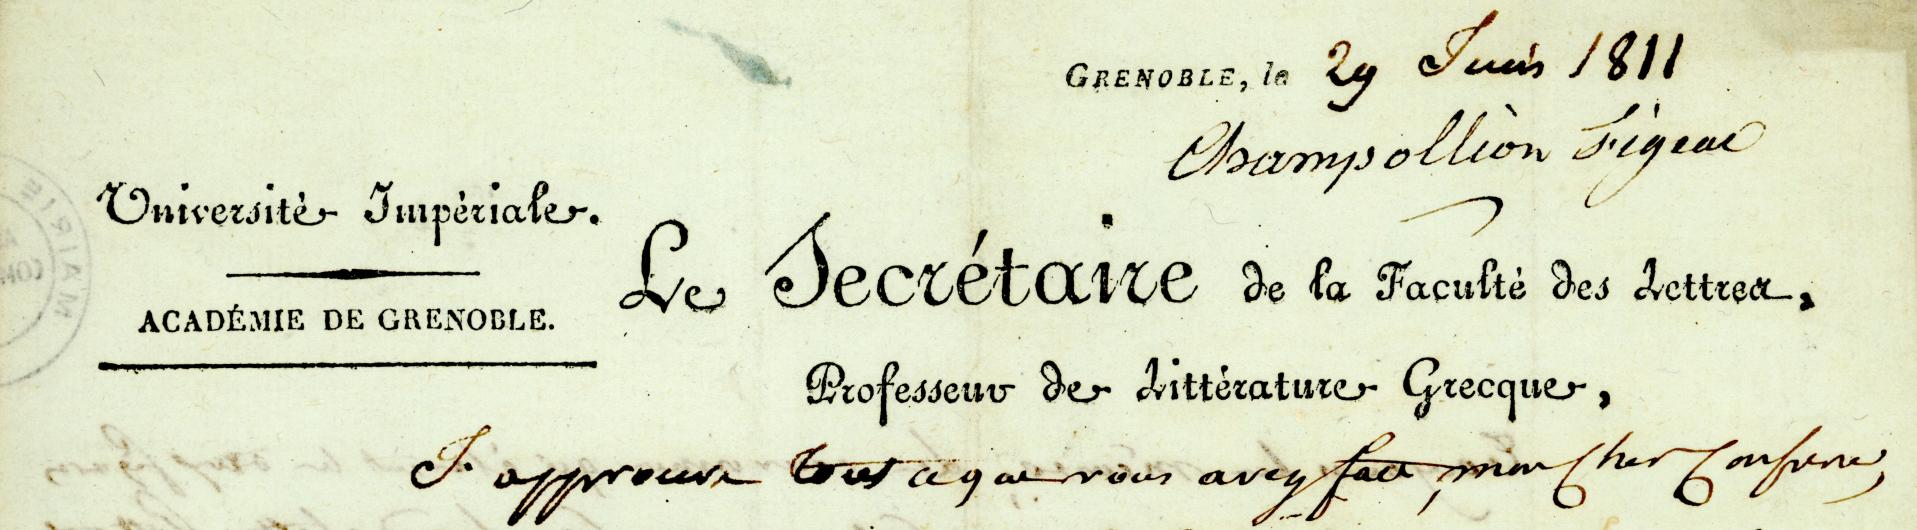 GRENOBLE, le 29 Juin 1811
Champollion Figeac
Université Impériale.
ACADÉMIE DE GRENOBLE.
Le Secrétaire de la Faculté des Lettres,
Professeur de Littérature Grecque,
J'approuve tout ce que vous avez fait, mon Cher Confrere,
MAIRIE